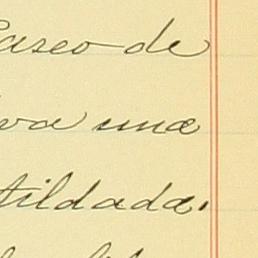 Paseo de
va una
tildada.